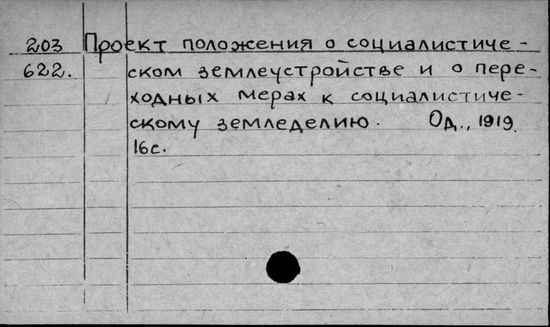 203 Проект положения о социалистиче-
622. ском землеустройстве и о пере-
ходных мерах к социалистиче-
скому земледелию. Од., 1919.
16с.